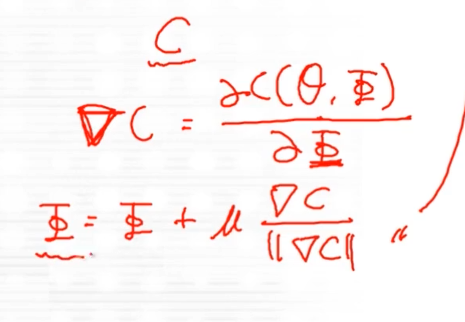 C
∇C = ∂C(θ, Φ) / ∂Φ
Φ = Φ + μ ∇C / ||∇C|| "